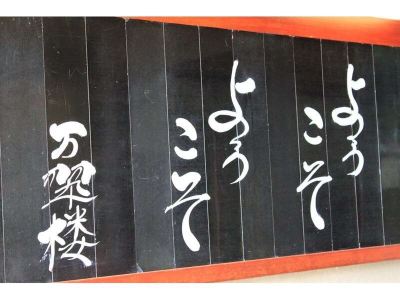 ようこそ
ようこそ
万翠楼